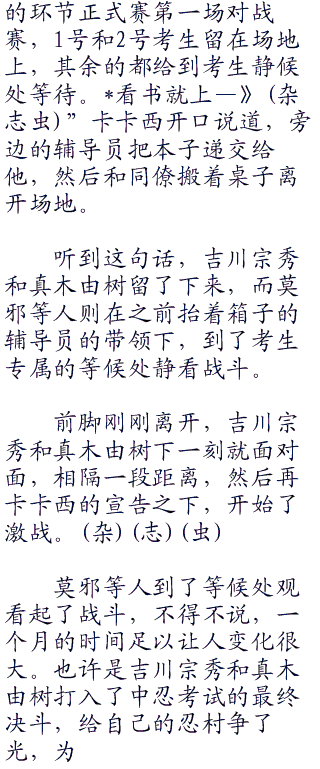 的环节正式赛第一场对战
赛，1号和2号考生留在场地
上，其余的都给到考生静候
处等待。*看书就上—》(杂
志虫)”卡卡西开口说道，旁
边的辅导员把本子递交给
他，然后和同僚搬着桌子离
开场地。
听到这句话，吉川宗秀
和真木由树留了下来，而莫
邪等人则在之前抬着箱子的
辅导员的带领下，到了考生
专属的等候处静看战斗。
前脚刚刚离开，吉川宗
秀和真木由树下一刻就面对
面，相隔一段距离，然后再
卡卡西的宣告之下，开始了
激战。(杂)(志)(虫)
莫邪等人到了等候处观
看起了战斗，不得不说，一
个月的时间足以让人变化很
大。也许是吉川宗秀和真木
由树打入了中忍考试的最终
决斗，给自己的忍村争了
光，为